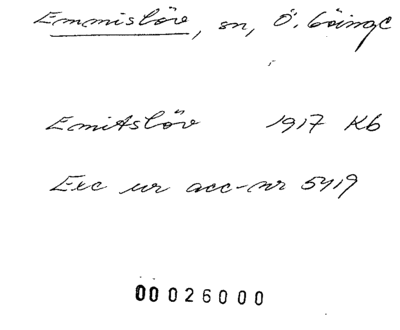 Emmislöv, sn, Ö. Göinge
Emitslöv 1917 Kb
Exc ur acc-nr 5419
00026000